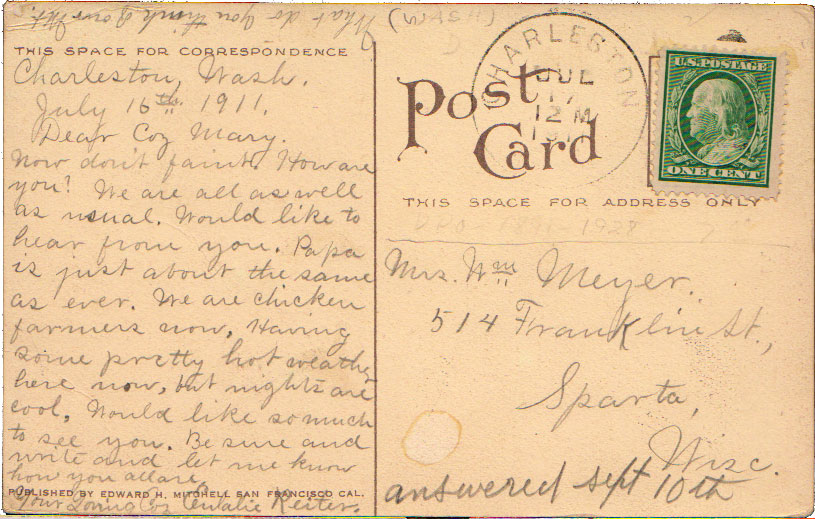 What do you think of our Mt.
THIS SPACE FOR CORRESPONDENCE
Charleston, Wash.
July 16th 1911.
Dear Coz Mary.
Now don't faint. How are
you? We are all as well
as usual. Would like to
hear from you. Papa
is just about the same
as ever. We are chicken
farmers now. Having
some pretty hot weather
here now, but nights are
cool. Would like so much
to see you. Be sure and
write and let me know
how you all are.
PUBLISHED BY EDWARD H. MITCHELL SAN FRANCISCO CAL.
Your Loving Coz Eulalie Reiter.
(WASH)
D
CHARLESTON
JUL
17
12 M
Post
Card
U.S. POSTAGE
ONE CENT
THIS SPACE FOR ADDRESS ONLY
DPO 1891-1928
Mrs. Wm Meyer.
514 Franklin St.,
Sparta,
Wisc.
answered sept 10th